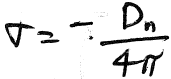 σ = - \frac{D_n}{4π}